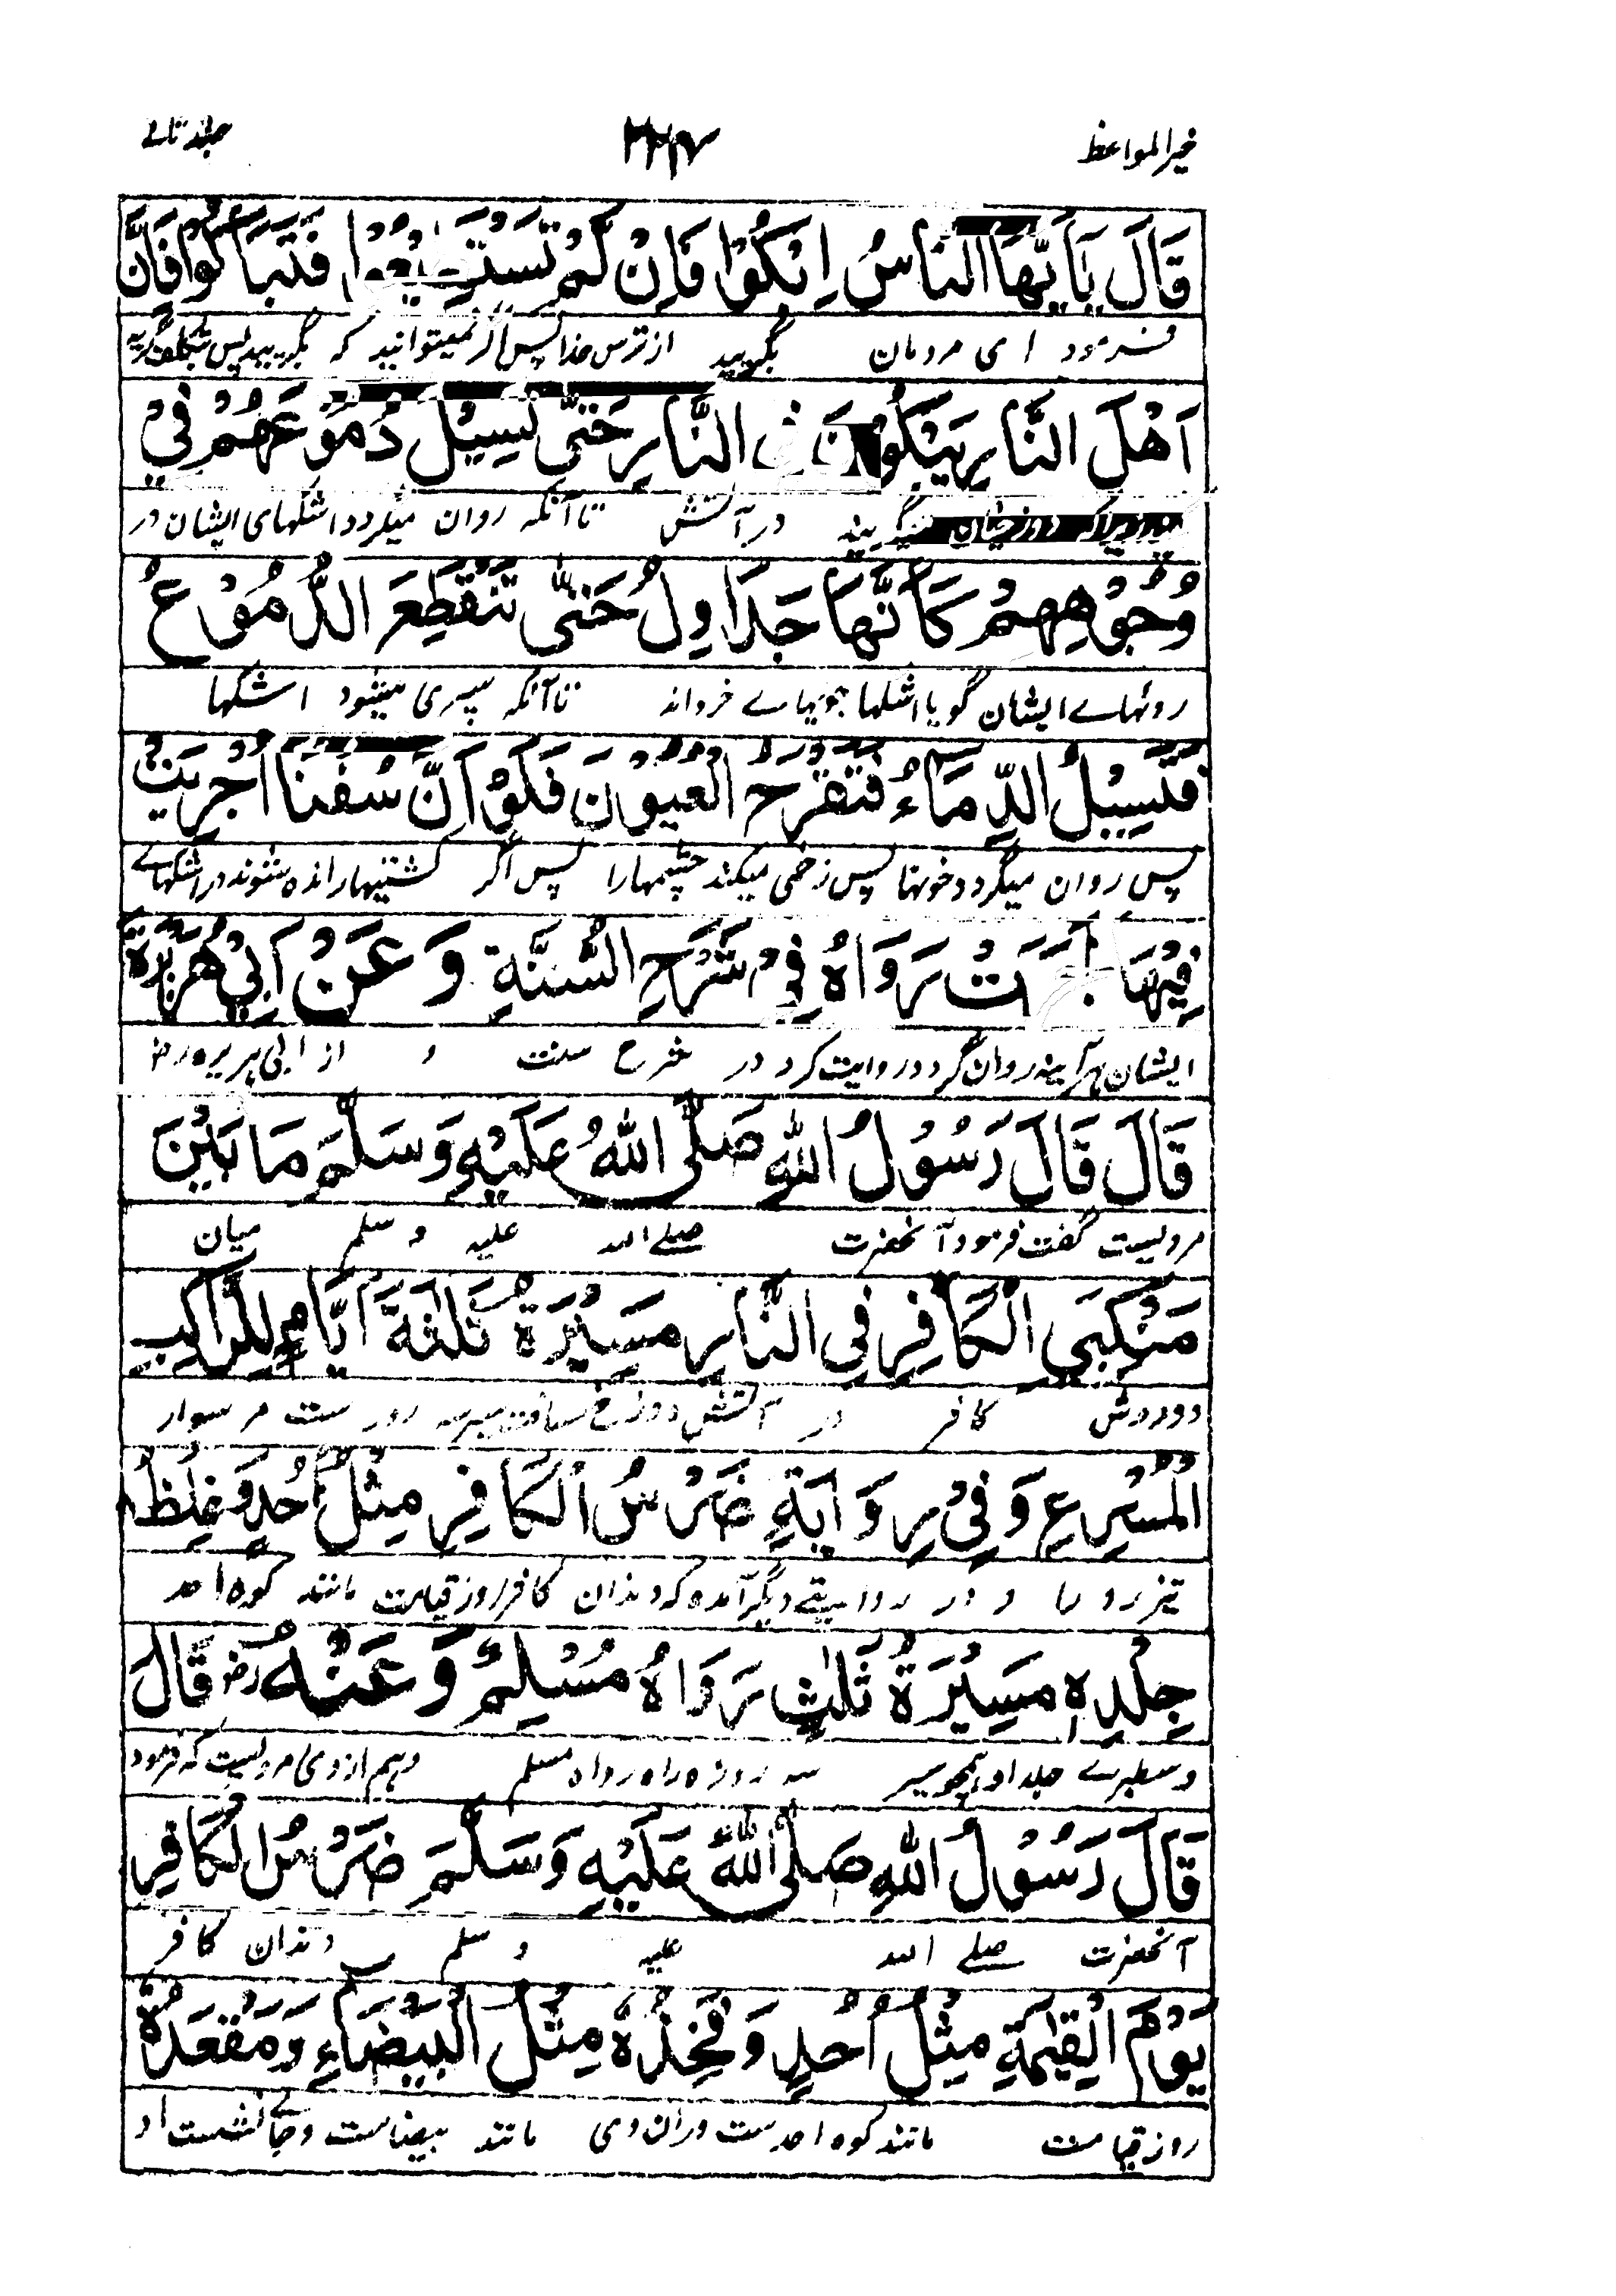 خیرالمواعظ
جلد ثانے
قَالَ يٰۤاَيُّهَا النَّاسُ اِبْكُوْا فَاِنْ لَّمْ تَسْتَطِيْعُوْا فَتَبَاكَوْا فَاِنَّ
فرمود ای مردمان بگریید از ترس خدا پس اگر نمیتوانید که بگریید پس بتکلف گریه
اَهْلَ النَّارِ يَبْكُوْنَ فِي النَّارِ حَتّٰى تَسِيْلَ دُمُوْعُهُمْ فِيْ
دوزخیان میگریند در آتش تا آنکه روان میگردد اشکهای ایشان در
وُجُوْهِهِمْ كَاَنَّهَا جَدَاوِلُ حَتّٰى تَنْقَطِعَ الدُّمُوْعُ
روئهاے ایشان گویا اشکها جویهاے خرد اند تا آنکه سپری میشود اشکها
فَتَسِيْلُ الدِّمَاءُ فَتَقَرَّحُ الْعُيُوْنَ فَلَوْ اَنَّ سُفُنًا اُجْرِيَتْ
پس روان میگردد خونها پس زخمی میکند چشمهارا پس اگر کشتیها رانده شوند در اشکهاے
فِيْهَا لَجَرَتْ رَوَاهُ فِيْ شَرْحِ السُّنَّةِ وَعَنْ اَبِيْ هُرَيْرَةَ
ایشان هر آینه روان گردد روایت کرد در شرح سنت و از ابی هریره رض
قَالَ قَالَ رَسُوْلُ اللّٰهِ صَلَّى اللّٰهُ عَلَيْهِ وَسَلَّمَ مَا بَيْنَ
مرویست گفت فرمود آنحضرت صلے الله علیه و سلم میان
مَنْكِبَيِ الْكَافِرِ فِي النَّارِ مَسِيْرَةُ ثَلٰثَةِ اَيَّامٍ لِلرَّاكِبِ
دو دوش کافر در آتش دوزخ مسافت سیر سه روز ست مر سوار
الْمُسْرِعِ وَفِيْ رِوَايَةٍ ضِرْسُ الْكَافِرِ مِثْلُ اُحُدٍ وَغِلَظُ
تیز رو را و در روایتے دیگر آمده که دندان کافر روز قیامت مانند کوه احد
جِلْدِهٖ مَسِيْرَةُ ثَلٰثٍ رَوَاهُ مُسْلِمٌ وَعَنْهُ رض قَالَ
و سطبرے جلد او همچو سیر سه روزه راه رواه مسلم و هم از وی مرویست که فرمود
قَالَ رَسُوْلُ اللّٰهِ صَلَّى اللّٰهُ عَلَيْهِ وَسَلَّمَ ضِرْسُ الْكَافِرِ
آنحضرت صلے الله علیه و سلم دندان کافر
يَوْمَ الْقِيٰمَةِ مِثْلُ اُحُدٍ وَفَخِذُهٗ مِثْلُ الْبَيْضَاءِ وَمَقْعَدُهٗ
روز قیامت مانند کوه احد ست و ران وی مانند بیضاست و جاے نشست او